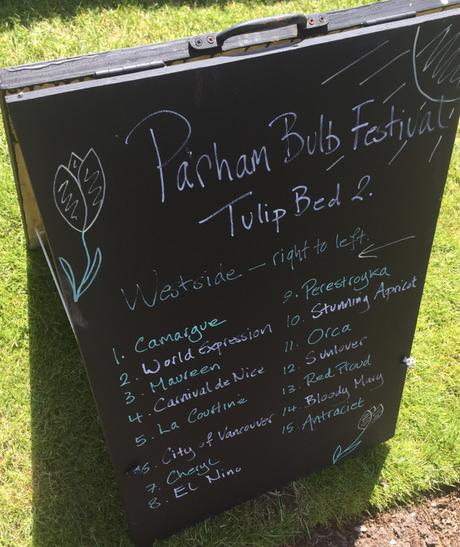 Parham Bulb Festival
Tulip Bed 2.
Westside – right to left.
1. Camargue
2. World Expression
3. Maureen
4. Carnival de Nice
5. La Courtine
6. City of Vancouver
7. Cheryl
8. El Nino
9. Perestroyka
10. Stunning Apricot
11. Orca
12. Sunlover
13. Red Proud
14. Bloody Mary
15. Antraciet